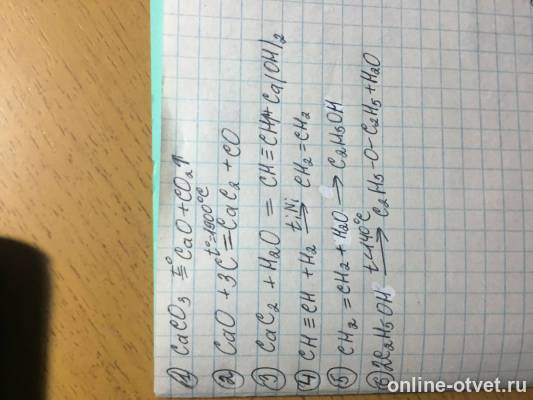 1) CaCO3 t°= CaO + CO2↑
2) CaO + 3C t°=1900°C = CaC2 + CO
3) CaC2 + H2O = CH≡CH + Ca(OH)2
4) CH≡CH + H2 t,Ni → CH2=CH2
5) CH2=CH2 + H2O → C2H5OH
6) 2C2H5OH t<140°C → C2H5-O-C2H5 + H2O
online-otvet.ru